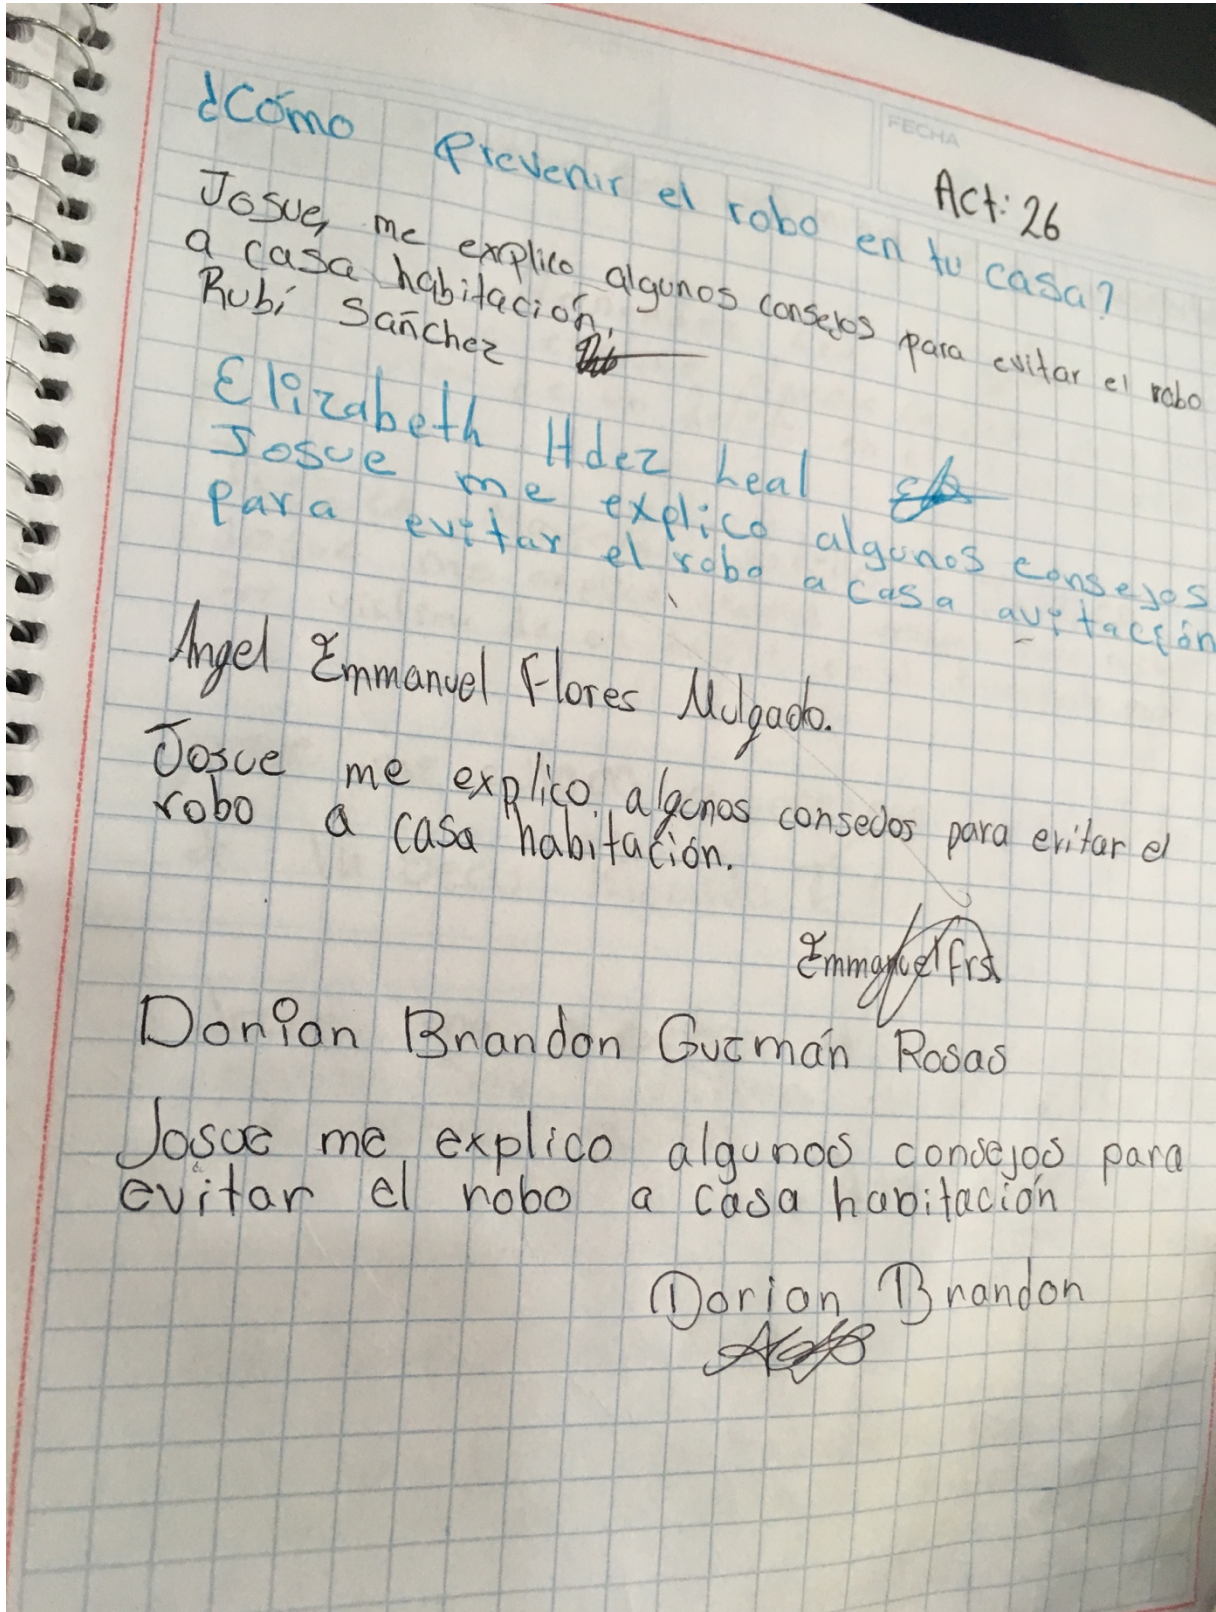 FECHA
Act: 26
¿Cómo Prevenir el robo en tu casa?
Josue, me explico algunos consejos para evitar el robo
a casa habitación.
Rubí Sánchez
Elizabeth Hdez Leal
Josue me explico algunos consejos
para evitar el robo a casa avitación
Angel Emmanuel Flores Mulgado.
Josue me explico algunos consejos para evitar el
robo a casa habitación.
Emmanuel Frs.
Dorian Brandon Guzmán Rosas
Josue me explico algunos consejos para
evitar el robo a casa habitación
Dorian Brandon